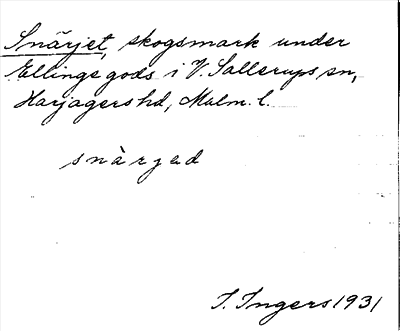 Snärjet, skogsmark under
Ellinge gods i V. Sallerups sn,
Harjagers hd, Malm. l.
snàrjad
I. Ingers 1931